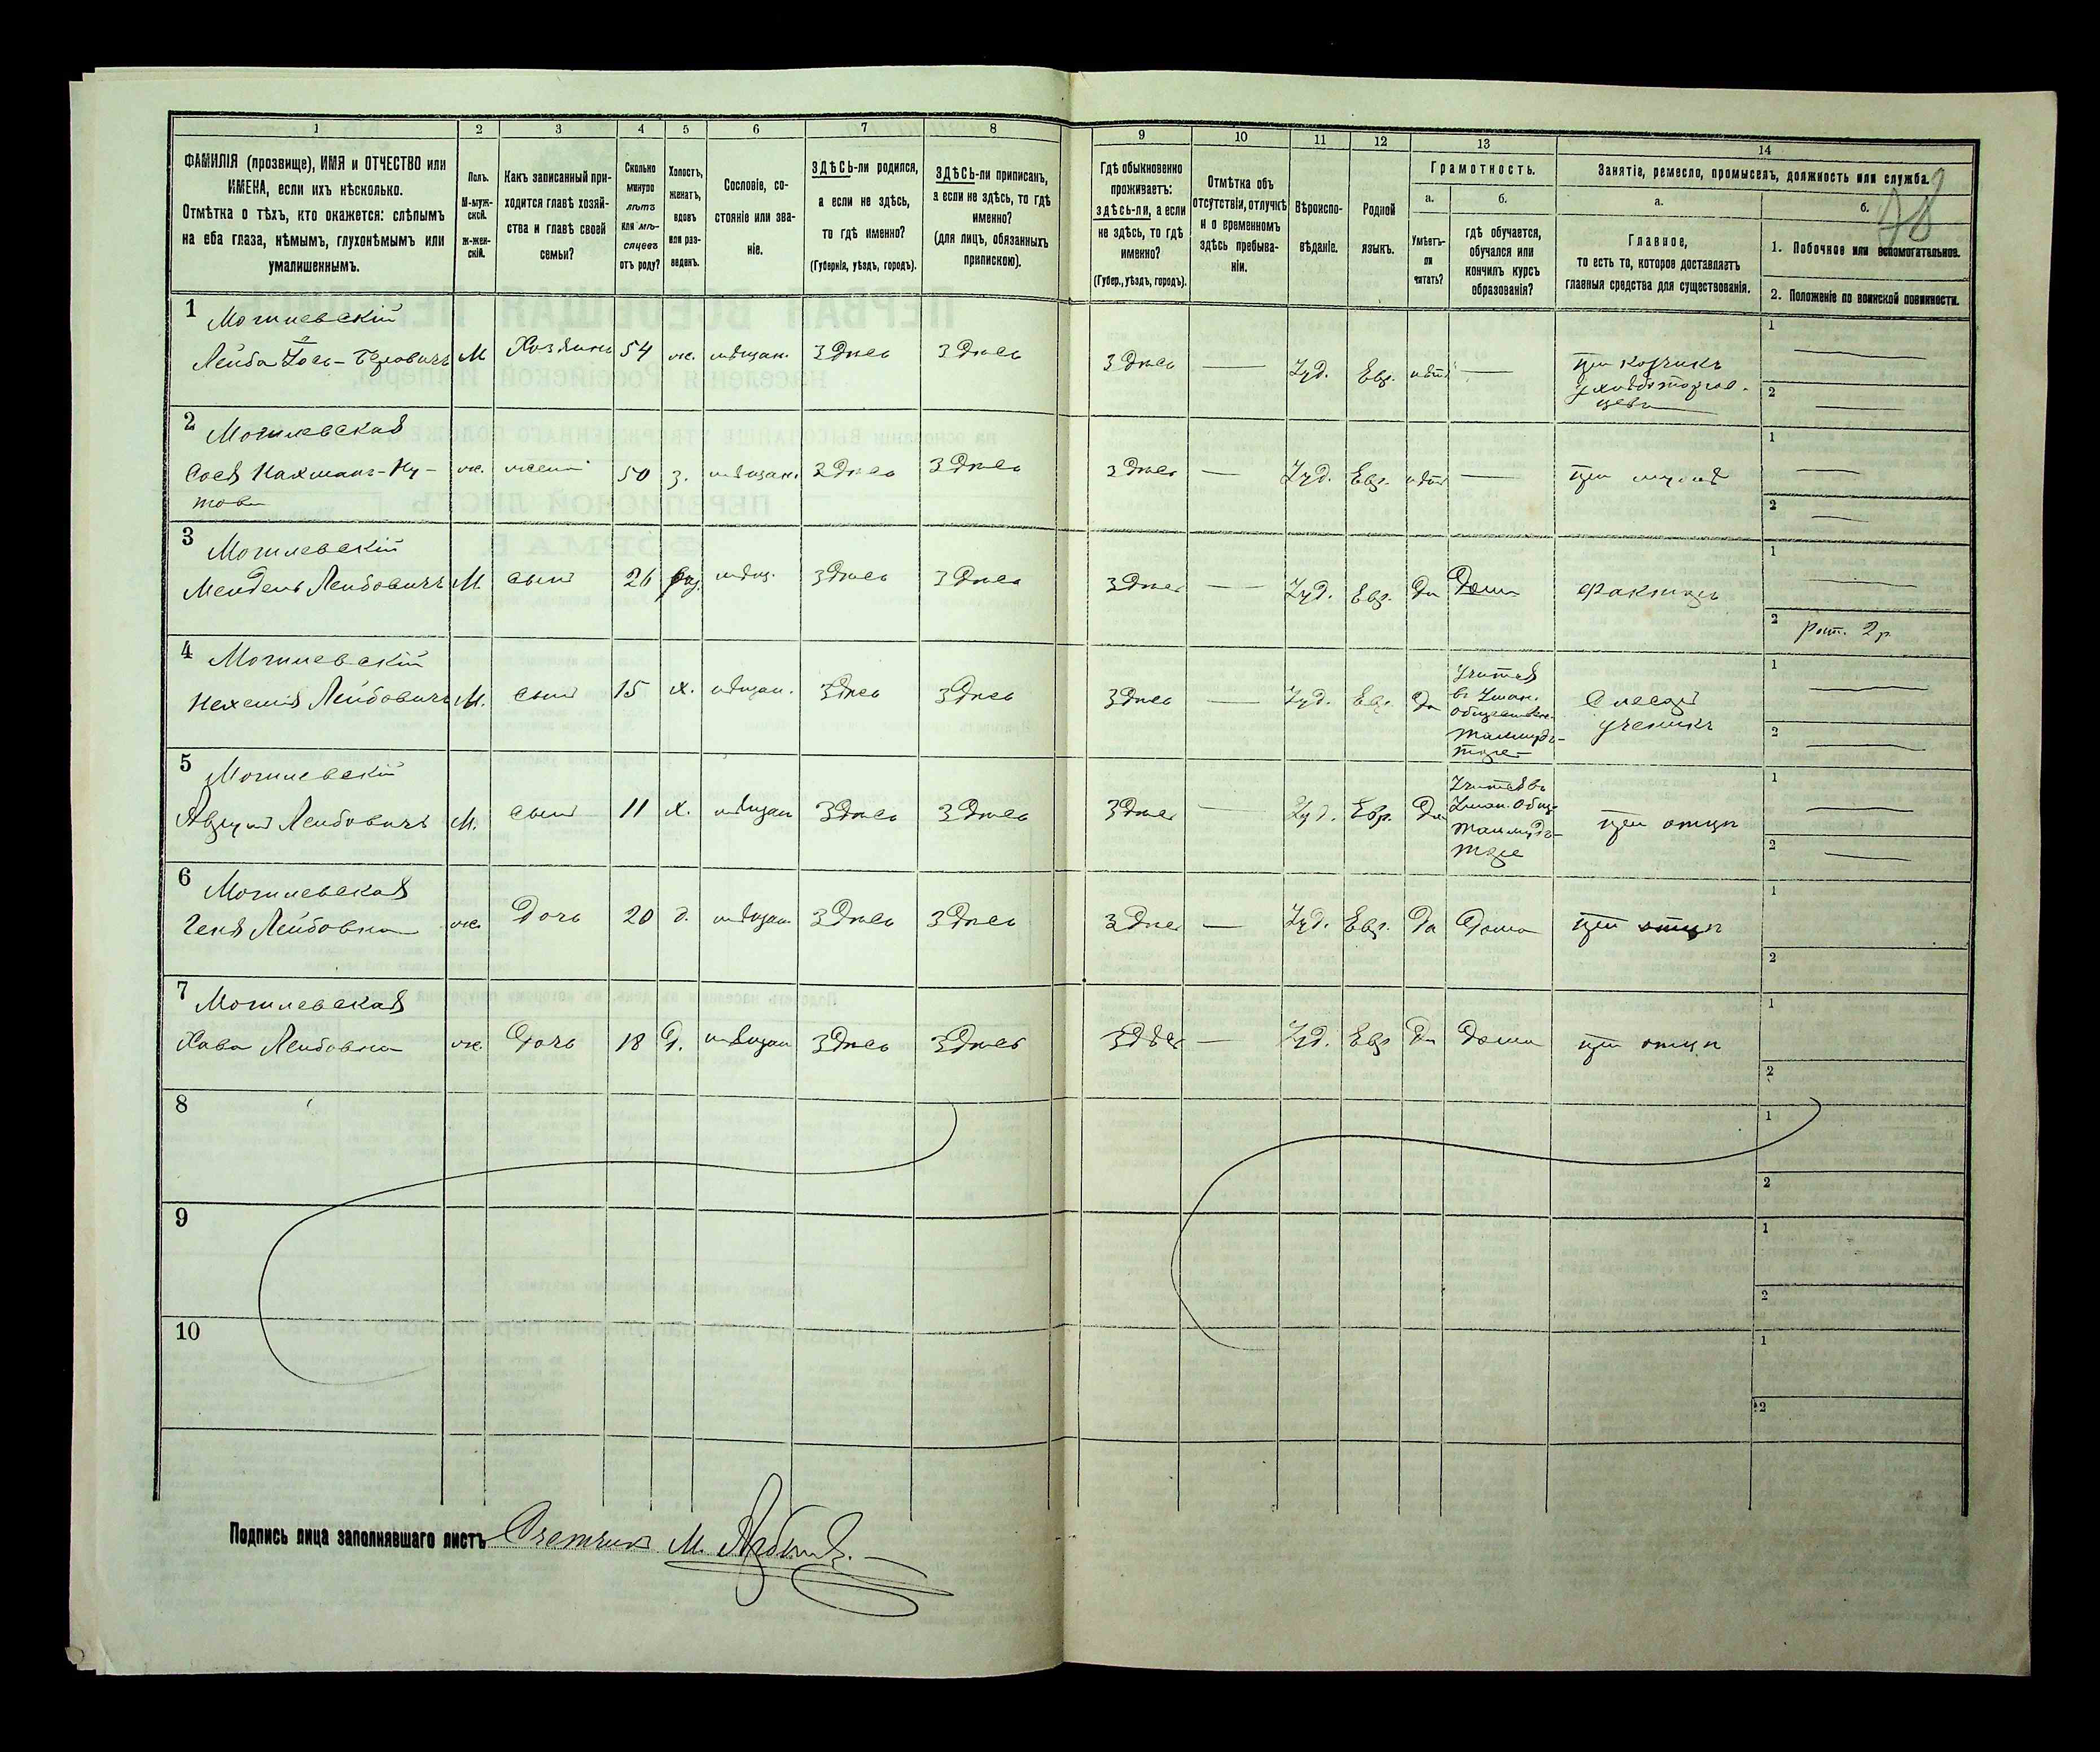 1 2 3 4 5 6 7 8 9 10 11 12 13 14
ФАМИЛІЯ (прозвище), ИМЯ и ОТЧЕСТВО или
ИМЕНА, если ихъ нѣсколько.
Отмѣтка о тѣхъ, кто окажется: слѣпымъ
на оба глаза, нѣмымъ, глухонѣмымъ или
умалишеннымъ.
Полъ.
М-муж-
ской.
ж-жен-
скій.
Какъ записанный при-
ходится главѣ хозяй-
ства и главѣ своей
семьи?
Сколько
минуло
лѣтъ
или мѣ-
сяцевъ
отъ роду?
Холостъ,
женатъ,
вдовъ
или раз-
веденъ.
Сословіе, со-
стояніе или зва-
ніе.
ЗДѢСЬ-ли родился,
а если не здѣсь,
то гдѣ именно?
(Губернія, уѣздъ, городъ).
ЗДѢСЬ-ли приписанъ,
а если не здѣсь, то гдѣ
именно?
(для лицъ, обязанныхъ
припискою).
Гдѣ обыкновенно
проживаетъ:
здѣсь-ли, а если
не здѣсь, то гдѣ
именно?
(Губер., уѣздъ, городъ).
Отмѣтка объ
отсутствіи, отлучкѣ
и о временномъ
здѣсь пребыва-
ніи.
Вѣроиспо-
вѣданіе.
Родной
языкъ.
Грамотность.
а.
Умѣетъ-
ли
читать?
б.
гдѣ обучается,
обучался или
кончилъ курсъ
образованія?
Занятіе, ремесло, промыселъ, должность или служба.
78
а.
Главное,
то есть то, которое доставляетъ
главныя средства для существованія.
б.
1. Побочное или вспомогательное.
2. Положеніе по воинской повинности.
1 Могилевскій
Лейба Іось-Беровичъ М Хозяинъ 54 ж. мѣщан. Здѣсь Здѣсь Здѣсь — Іуд. Евр. нѣтъ —
при
1 —
2 —
2 Могилевская
Сося Нахманъ-Ну-
това
ж. жена 50 з. мѣщан. Здѣсь Здѣсь Здѣсь — Іуд. Евр. нѣтъ — при мужѣ
1 —
2 —
3 Могилевскій
Мендель Лейбовичъ М. сынъ 26 раз. мѣщ. Здѣсь Здѣсь Здѣсь — Іуд. Евр. Да Дома Факторъ
1 —
2 рат. 2 р.
4 Могилевскій
Нехемія Лейбовичъ М. сынъ 15 х. мѣщан. Здѣсь Здѣсь Здѣсь — Іуд. Евр. Да
Учится
въ Уман.
обществен.
талмудъ-
торе
Слесарь
ученикъ
1 —
2 —
5 Могилевскій
Лейбовичъ М. сынъ 11 х. мѣщан Здѣсь Здѣсь Здѣсь — Іуд. Евр. Да
Учится въ
Уман. общ.
талмудъ-
торе
при отцѣ
1 —
2 —
6 Могилевская
Геня Лейбовна ж. Дочь 20 д. мѣщан. Здѣсь Здѣсь Здѣсь — Іуд. Евр. Да Дома при отцѣ
1
2
7 Могилевская
Хава Лейбовна ж. Дочь 18 д. мѣщан Здѣсь Здѣсь Здѣсь — Іуд. Евр Да Дома при отцѣ
1
2
8
1
2
9
1
2
10
1
2
Подпись лица заполнявшаго листъ Счетчикъ М.